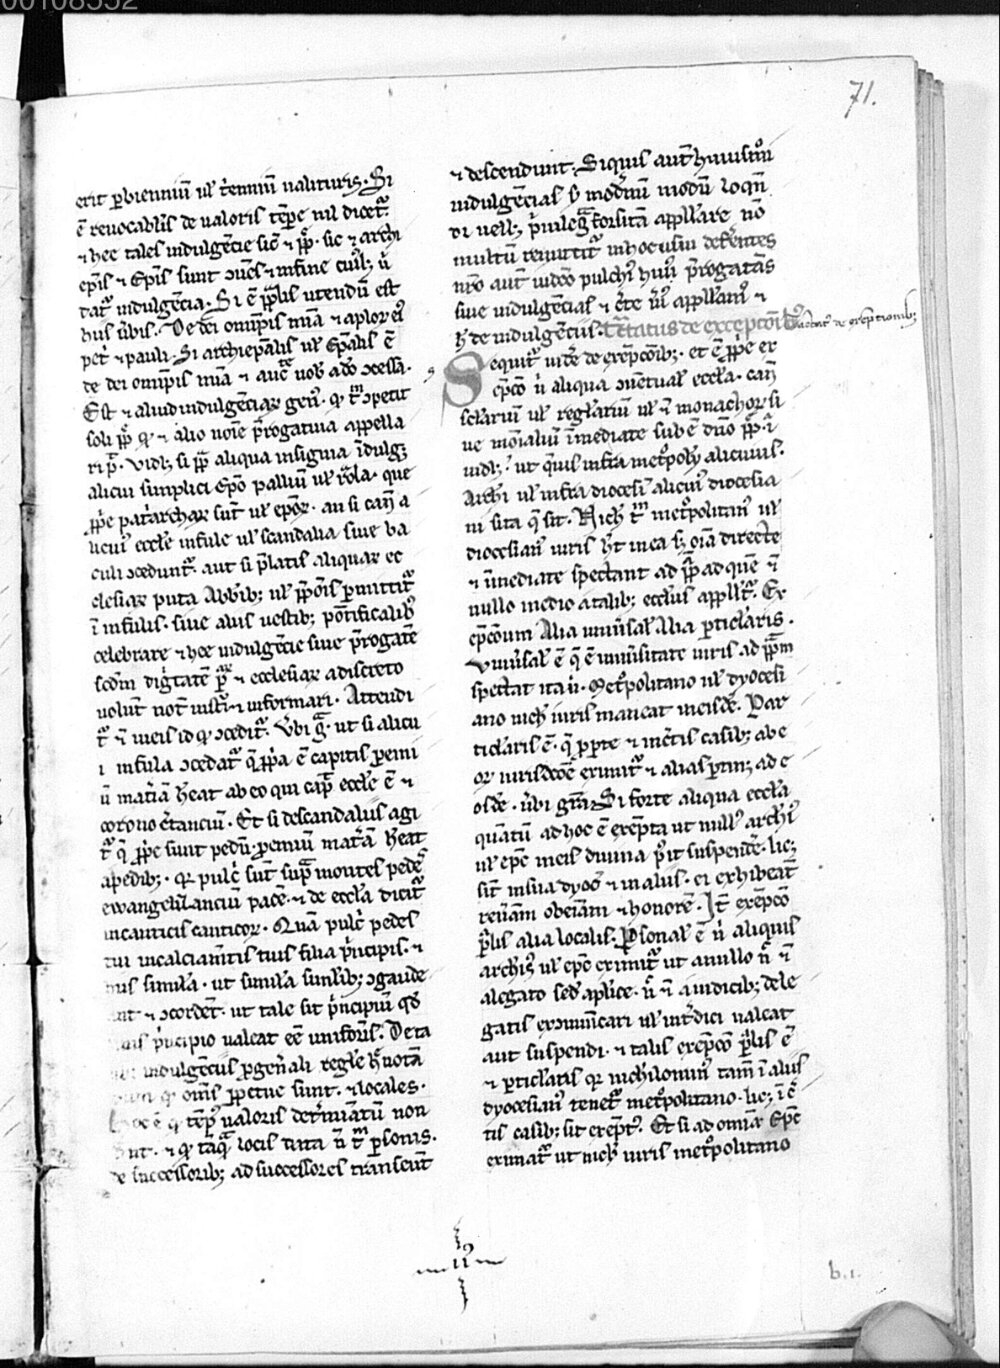 00108552
71.
erit ꝑ bienniū ul̓ t̓enniū ualituris. Si
ē reuocabil̓s de ualoris tēꝑe nil dicet᷑.
⁊ hee tales indulgēcie sic̄ ⁊ pp̄. sic ⁊ archi
ep̄is ⁊ ep̄is sunt
dat᷑ indulgēcia. Si ē pp̄lis utendū est
hiis ūbis. De dei om̄ip̄tis mīa ⁊ aplor̄ eī
pet̓ ⁊ pauli. Si archiep̄alis ul̓ ep̄alis ē
de dei om̄ip̄tis mīa ⁊ auc̄te nob̄ a deo ꝯcessa.
Est ⁊ aliud indulgēciar̄ gen̄. qđ t̄m ꝯpetit
soli pp̄ qđ ⁊ alio noīe p̄rogatiua appella
ri p̄t. Vidꝫ si pp̄ aliqua insignia īdulgꝫ
alicui simplici ep̄o palliū ul̓
pp̄e pat̓archar̄ sūt ul̓ ep̄or̄. an si
licui᷒ eccl̄e infule ul̓ scandalia siue ba
culi ꝯcedunt᷑. aut si p̄latis aliquar̄ ec
clesiar̄ puta Abb̄ibꝫ ul̓ pp̄ōis ꝑmittit᷑
ī infulis. siue aliis uestibꝫ pōtificalibꝫ
celebrare ⁊ hee indulgēcie siue p̄rogatē
scd̄m dig̓tatē ꝑ᷒ ⁊ ecclesiar̄ a discreto
uolūt not̄ iusti᷒ ⁊ informari. Attendi
t᷑ ⁊ in eis id qđ ꝯcedit᷑. Vbi g̓a. ut si alicu
i infula ꝯcedat᷑ q̄ pp̄a ē capitis ꝓemi
ū mat̓iā h̄eat ab eo qui cap̄ eccl̄e ē ⁊
corono c̄tanciū. Et si de scandaliis agi
t᷑ q̄ pp̄e sunt pedū ꝓemiū mat̓iā h̄eat
a pedibꝫ. qr̄ pulc̓ sūt sup̄ montes pedes
ewangelizanciū pacē. ⁊ de eccl̄a dicit᷑
in canticis canticor̄. Quā pulc̓ pedes
tui in calciam̄tis tuis filia p̓ncipis. ⁊
simil̓a. ut simil̓a simil̓ibꝫ ꝯgaude
⁊ ꝯcordet̄. ut tale sit p̓ncipiū qđ
p̓ncipio ualeat eē unifor̄s. De ta
indulgēciis ꝓ gen̄ali regl̄e h̓ notā
qđ om̄s ꝑpetue sunt. ⁊ locales.
ē qđ tēp᷒ ualoris det̓minatū non
⁊ qđ tāq̄ locis data n̄ t̄m ꝑsonis.
de successoribꝫ ad successores transeūt
⁊ descendunt. Si quis aut̄ hui᷒smōi
indulgēcias ꝯ mod̓nū modū loqn̄
di uell̓ p̓uileg̓a forsitā appll̓are nō
multū remittit᷑ in hoc usui defētes
nr̄o aut̄ iudeo pulchi᷒ hui᷒ p̄rogatias
siue indulgēcias ⁊ c̄te ūi᷒ appll̓ant᷑ ⁊
h̄ de indulgēciis. Tractatus de exceptōibꝫ
Tractat᷒ de exēptionibꝫ
Sequit᷑ uid̄e de exēpcōibꝫ. et ē pp̄e ex
ēpcō ū aliqua ꝯuētual̓ eccl̄a. can̄
sclariū ul̓ regl̓ariū ul̓ ⁊ monachor̄ si
ue mōialiū īmediate sub ē dn̄o pp̄ ī
uidꝫ. ut q̓uis infra met᷒poly alicuius.
Archi ul̓ infra diocesī alicui᷒ diocesia
ni sita q̄ sit. Nich̓ t̄m met᷒politan᷒ ul̓
diocesian᷒ iuris h̄t in ea sꝫ oīa directe
⁊ īmediate spectant ad pp̄ ad quē ⁊
nullo medio a talibꝫ ecclīis appll̓at᷑. Ex
ēpcōum Alia uniūsal̓ Alia ꝑticl̓aris.
Vniūsal̓ ē q̄ ē in uniūsitate iuris ad pp̄m
spectat ita ū. Met᷒politano ul̓ dyocesi
ano nich̓ iuris maneat in eisdē. Par
ticl̓aris ē. q̄ ꝑ ꝑte ⁊ in c̓tis casibꝫ ab e
or̄ iurisdcōē eximit᷑ ⁊ alias ꝑtinꝫ ad e
osdē. ūbi gr̄a Si forte aliqua eccl̄a
quātū ad hoc ē exēpta ut null᷒ archi᷒
ul̓ ep̄c in eis diuina p̓it suspendē. licꝫ
sit̄ in sua dyoc̄ ⁊ in aliis. ei exhibeāt
reūam obeiam ⁊ honorē. It̄ exēpcō
p̄lis alia localis. Ꝑsonal̓ ē ū aliquis
archi᷒ ul̓ ep̄c eximit᷑ ut a nullo n̄ ⁊
a legato sed̓ aplīce. n̄ ⁊ a iudicibꝫ dele
gatis excōmūicari ul̓ int̓dici ualeat
aut suspendi. ⁊ talis exēpcō p̄lis ē
⁊ ꝑticl̓aris qr̄ nichilomin᷒ tam̄ ī aliis
dyocesian᷒ tenet᷑ met᷒politano. licꝫ ī c̓
tis casibꝫ sit exēpt᷒. Et si ad om̄ia ep̄c
eximat᷑ ut nich̓ iuris met᷒politano
II
b.1.